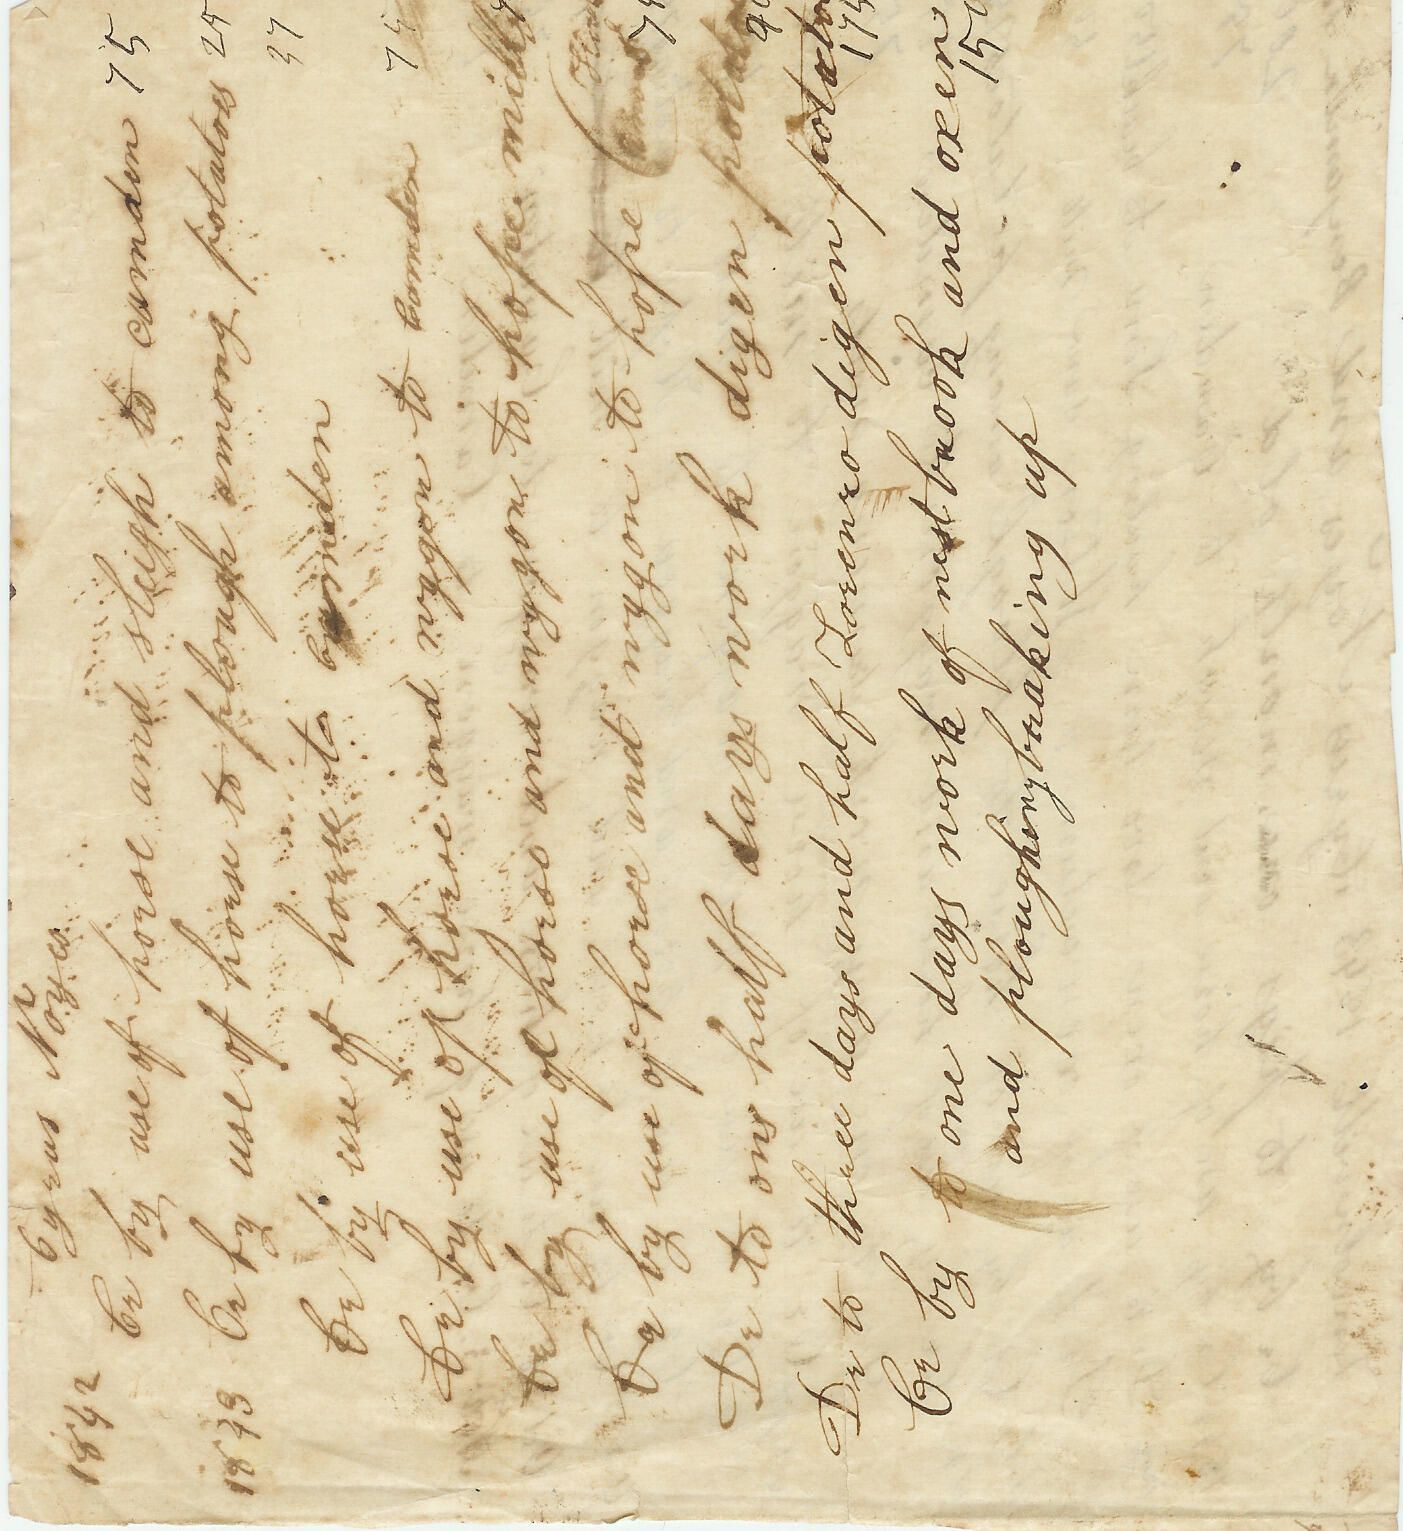 Cyrus Noyes
1842
Cr by use of horse and sleigh to camden 75
1843 Cr by use of horse to plough among potatoes 25
Cr by use of horse to camden 37
Cr by use of horse and waggon to Camden 75
Cr by use of horse and waggon to hope mills
Cr by use of horse and waggon to hope
Dr to one half days work digen potatoes
Dr to three days and half Lorenzo digen potatoes 175
Cr by to one days work of nest brook and oxen 150
and ploughing braking up